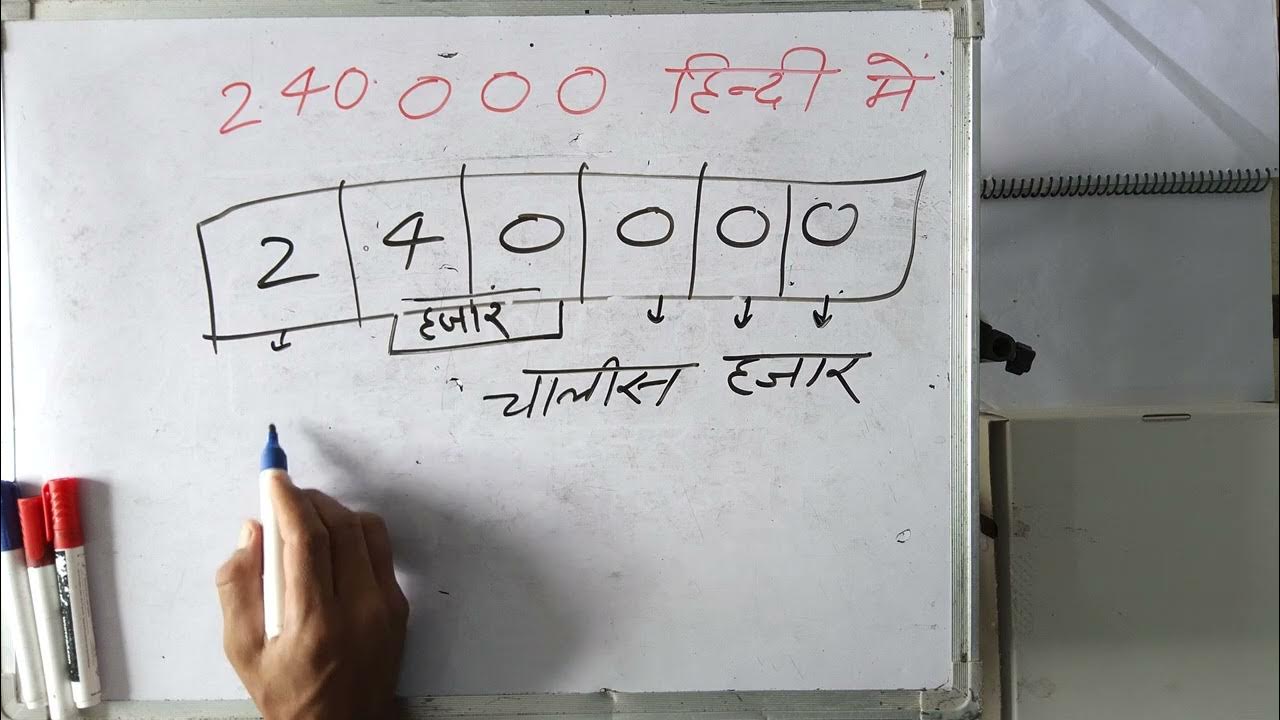 240000 हिन्दी में
2 4 0 0 0 0
हजार
चालीस हजार